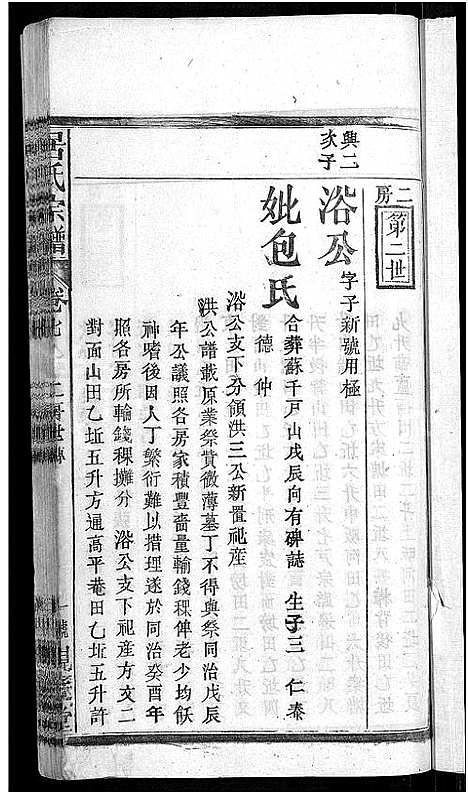 二房
第二世
興二次子
浴公 字子新號用極
妣包氏 合葬蘇千戸山戌辰向有碑誌 生子三 仁泰
德仲
浴公支下分領洪三公新置祀産
洪公譜載原業祭貲微薄墓丁不得與祭同治戊辰
年公議照各房家積豐嗇量輸錢稞俾老少均飫
神嗜後因人丁繁衍難以措理遂於同治癸酉年
照各房所輸錢稞攤分 浴公支下祀産方交二
對面山田乙坵五升方逼高平菴田乙坵五升許
呂氏宗譜 卷七 二房世傳 一